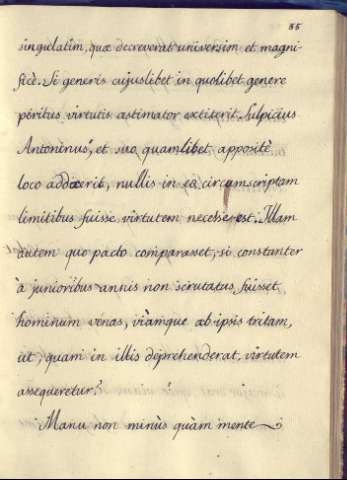 85
singulatim, quæ decreverat universim et magni-
ficè. Si generis cujuslibet in quolibet genere
péritus virtutis æstimator extiterit Sulpicius
Antoninus, et suo quamlibet appositè
loco addixerit, nullis in eâ circumscriptam
limitibus fuisse virtutem necesse est. Illam
autem quo pacto comparasset, si constanter
à junioribus annis non scrutatus fuisset
hominum venas, viàmque ab ipsis tritam,
ut, quam in illis deprehenderat, virtutem
assequeretur?
Manu non minùs quàm mente